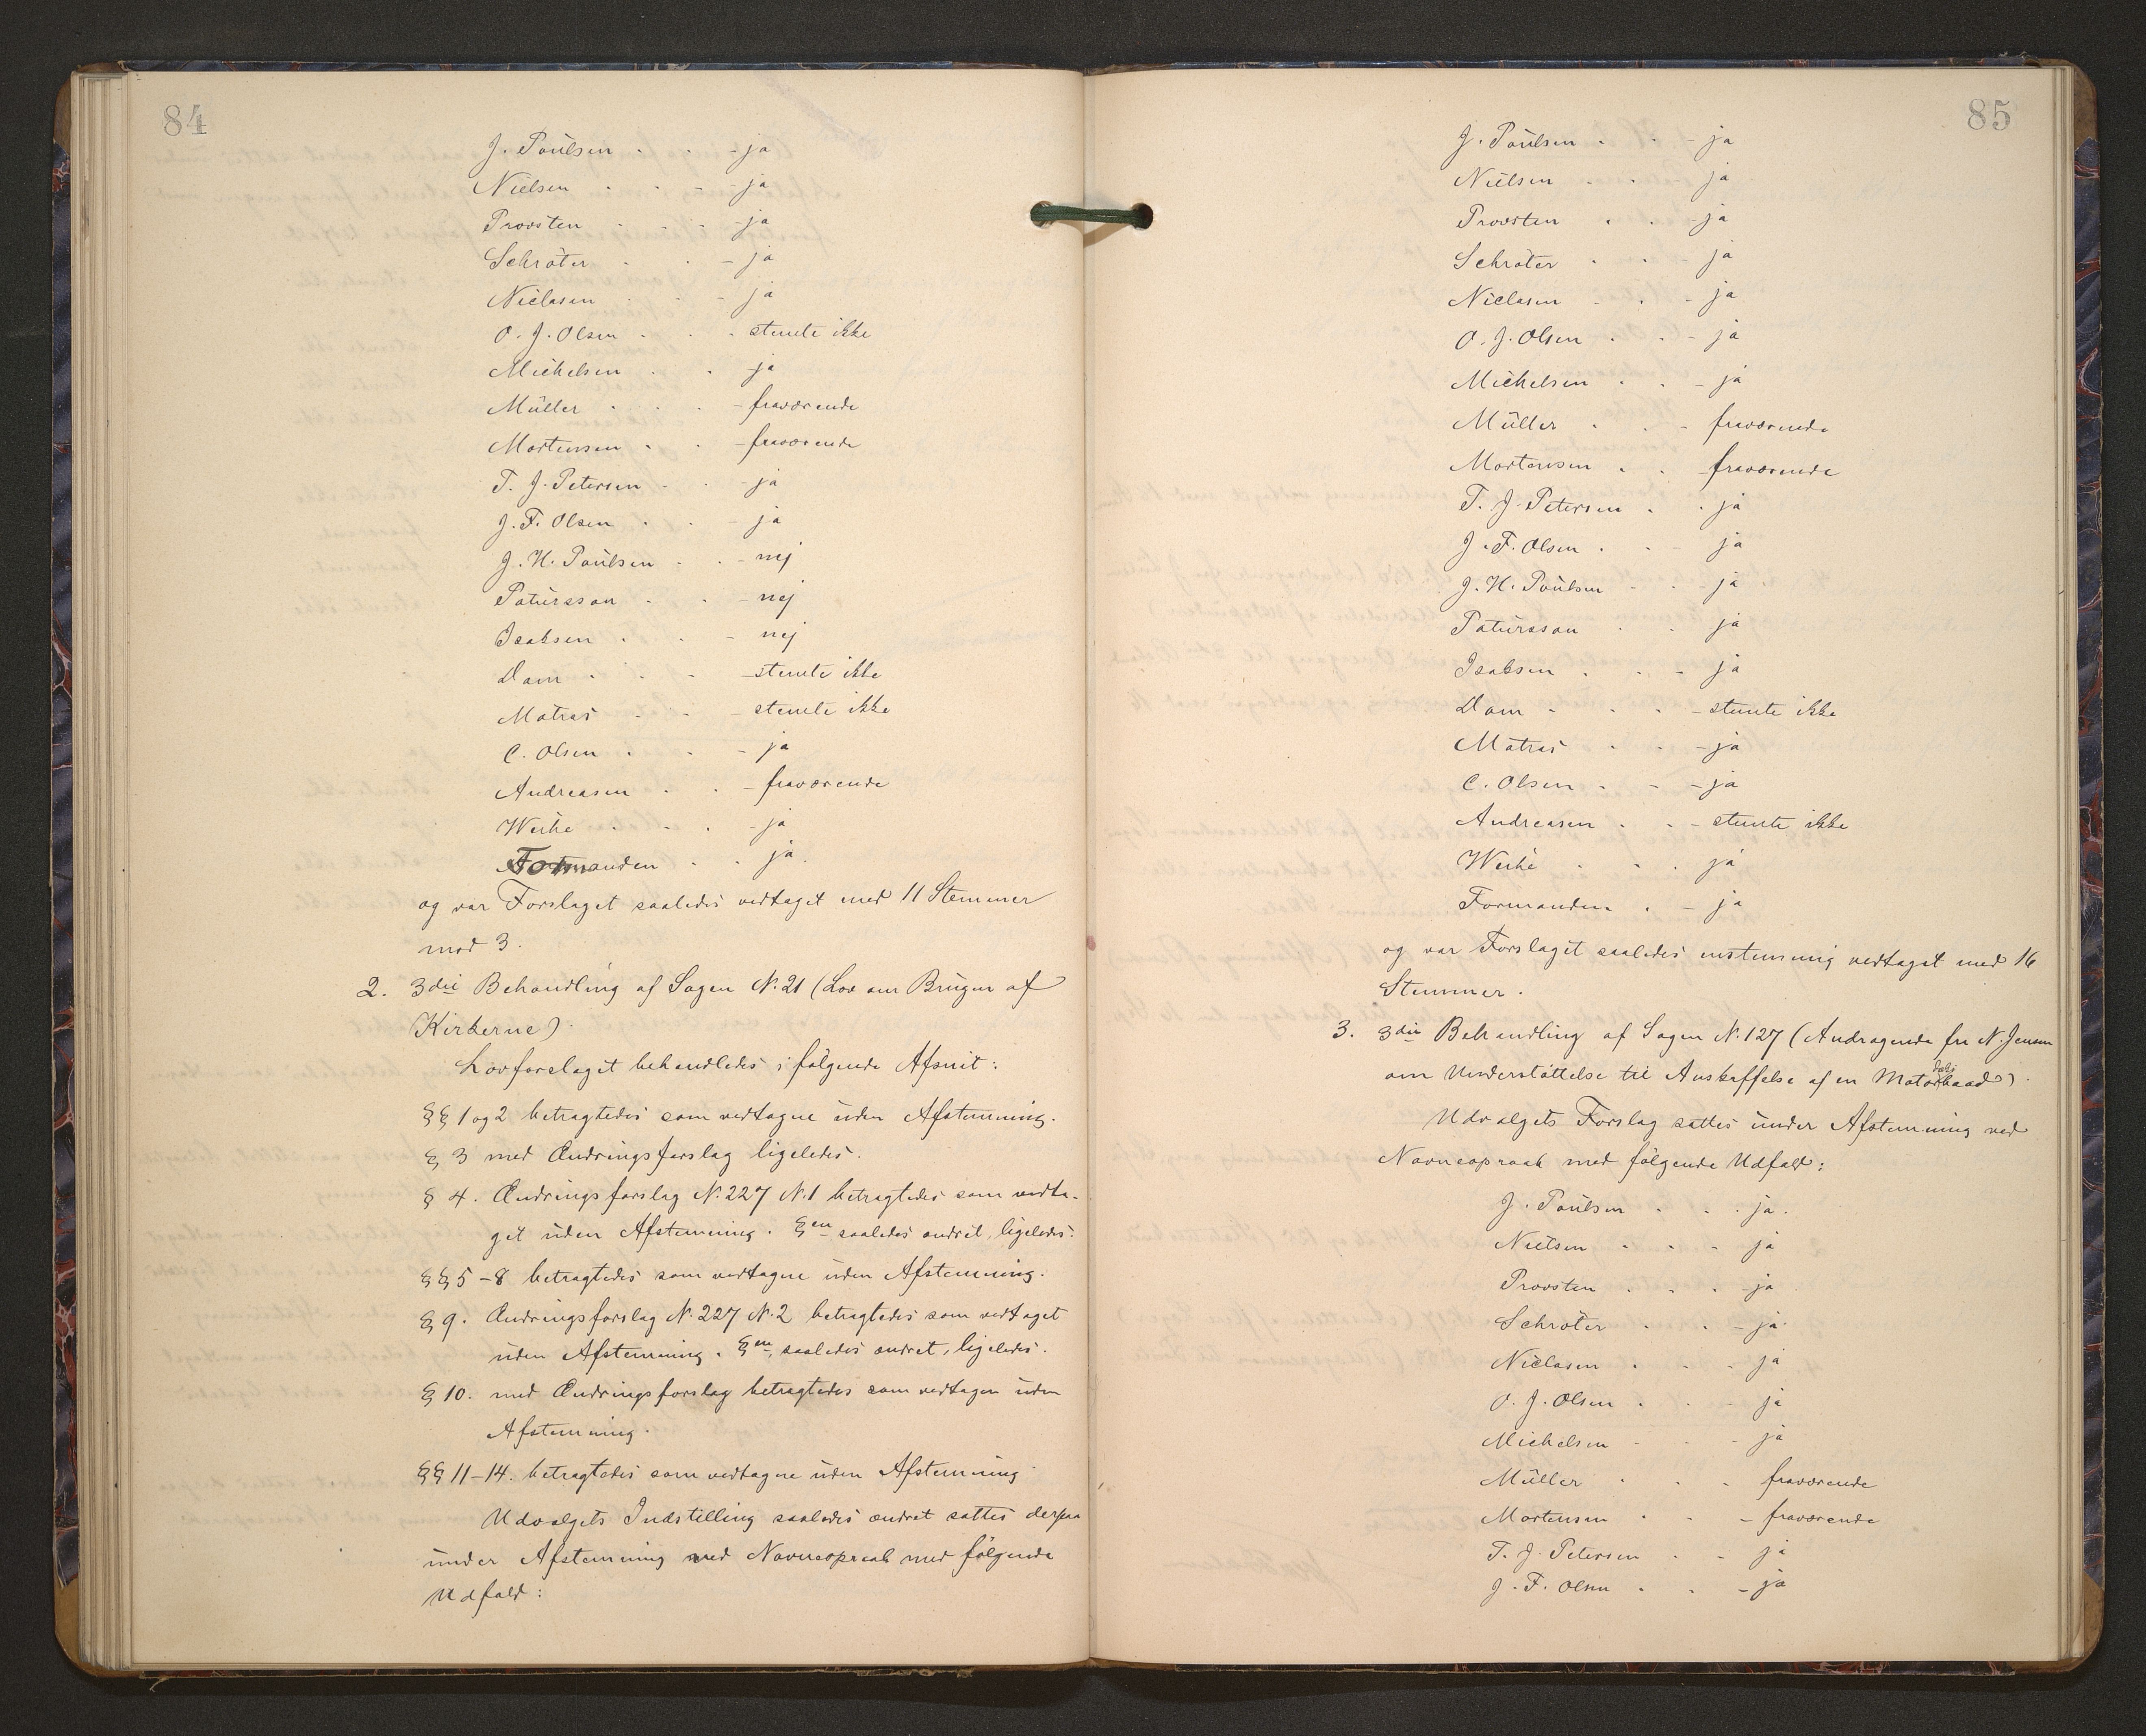 84
J. Paulsen - ja
Nielsen - ja
Provsten - ja
Schrøter - ja
Niclasen - ja
O. J. Olsen - stemte ikke
Michelsen - ja
Müller - fraværende
Mortensen - fraværende
T. J. Petersen - ja
J. F. Olsen - ja
J. H. Poulsen - nej
Patursson - nej
Isaksen - nej
Dam - stemte ikke
Matras - stemte ikke
C. Olsen - ja
Andreasen - fraværende
Weihe - ja
Formanden - ja.
og var Forslaget saaledes vedtaget med 11 Stemmer
mod 3.
2. 3die Behandling af Sagen N. 21 (Lov om Brugen af
Kirkerne).
Lovforslaget behandledes i følgende Afsnit:
§§ 1 og 2 betragtedes som vedtagne uden Afstemning.
§ 3 med Ændringsforslag ligeledes.
§ 4. Ændringsforslag N. 227 N. 1 betragtedes som vedta-
get uden Afstemning. §en saaledes ændret, ligeledes.
§§ 5-8 betragtedes som vedtagne uden Afstemning.
§ 9. Ændringsforslag N. 227 N. 2 betragtedes som vedtaget
uden Afstemning. §en, saaledes ændret, ligeledes.
§ 10. med Ændringsforslag betragtedes som vedtagen uden
Afstemning.
§§ 11-14. betragtedes som vedtagne uden Afstemning
Udvalgets Indstilling saaledes ændret sattes derpaa
under Afstemning ved Navneopraab med følgende
Udfald:
85
J. Paulsen - ja
Nielsen - ja
Provsten - ja
Schrøter - ja
Niclasen - ja
O. J. Olsen - ja
Michelsen - ja
Müller - fraværende
Mortensen - fraværende
T. J. Petersen - ja
J. F. Olsen - ja
J. H. Poulsen - ja
Patursson - ja
Isaksen - ja
Dam - stemte ikke
Matras - ja
C. Olsen - ja
Andreasen - stemte ikke
Weihe - ja
Formanden - ja
og var Forslaget saaledes enstemmig vedtaget med 16
Stemmer.
3. 3die Behandling af Sagen N. 127 (Andragende fra N. Jensen
om Understøttelse til Anskaffelse af en Motorbaad).
Udvalgets Forslag sattes under Afstemning ved
Navneopraab med følgende Udfald:
J. Paulsen - ja.
Nielsen - ja
Provsten - ja
Schrøter - ja
Niclasen - ja
O. J. Olsen - ja
Michelsen - ja
Müller - fraværende
Mortensen - fraværende
T. J. Petersen - ja
J. F. Olsen - ja